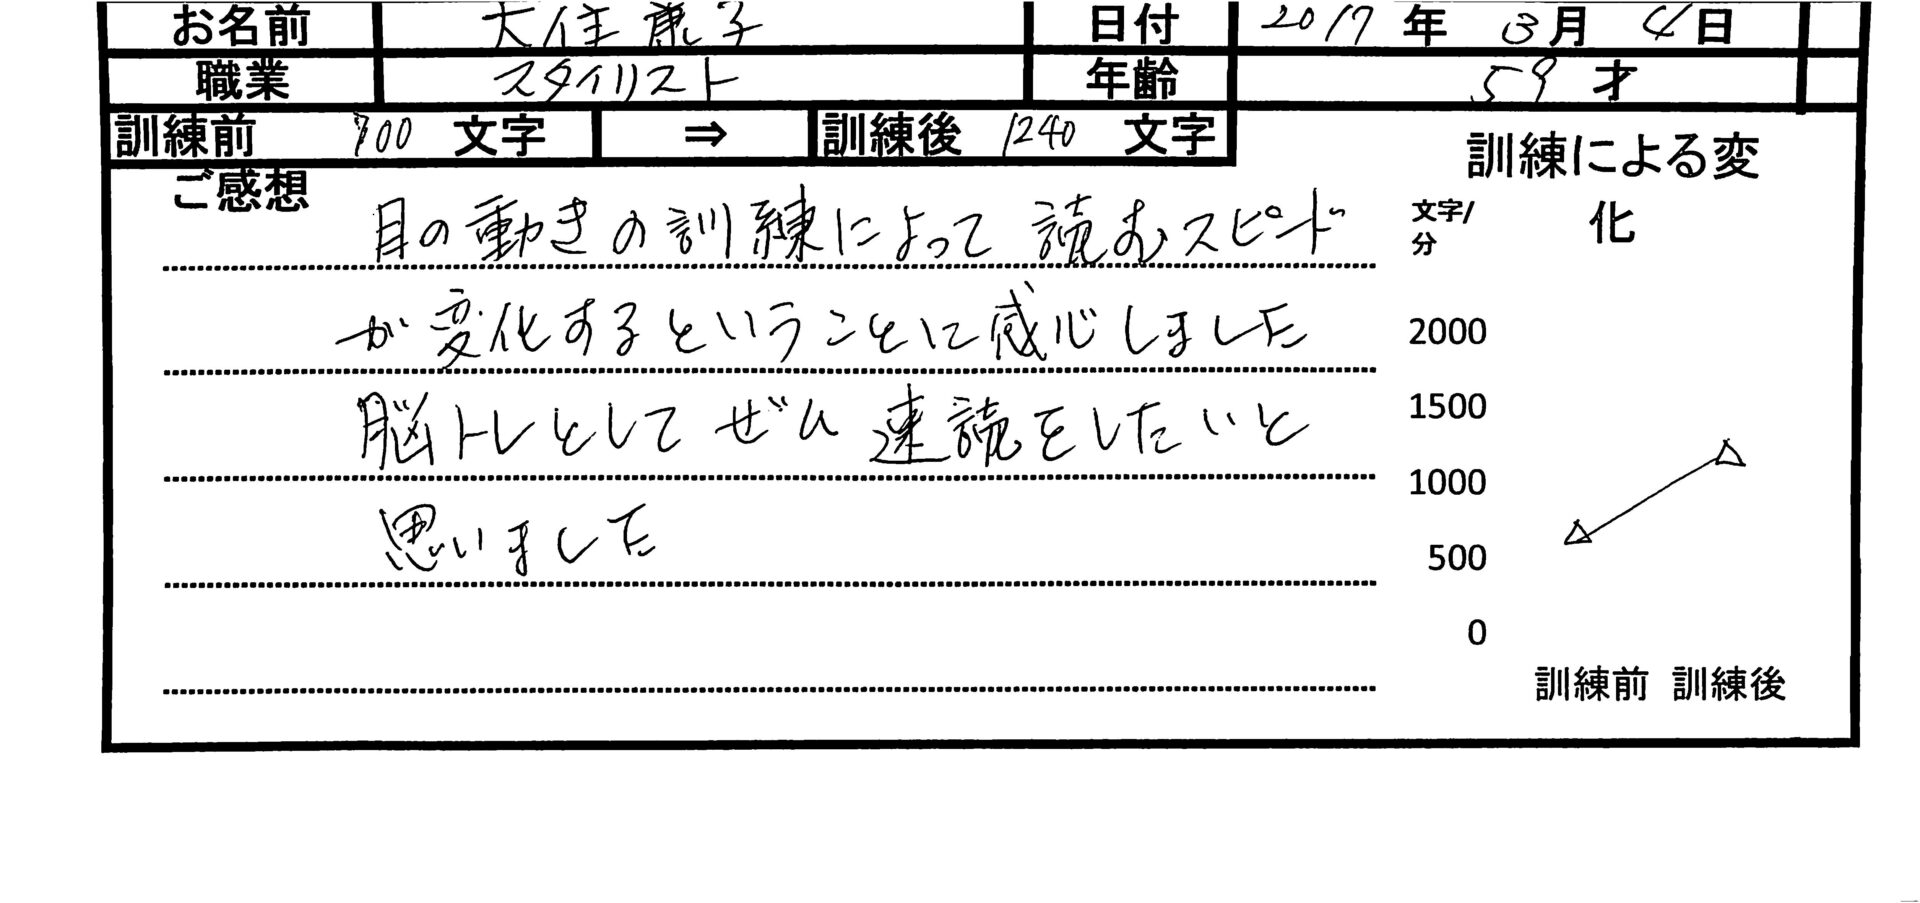 お名前 大住 康子 日付 2017 年 3 月 4 日
職業 スタイリスト 年齢 59 才
訓練前 700 文字 ⇒ 訓練後 1240 文字
ご感想
目の動きの訓練によって 読むスピード
が変化するということに感心しました
脳トレとして ぜひ 速読をしたいと
思いました
訓練による変
化
文字/
分
2000
1500
1000
500
0
訓練前 訓練後